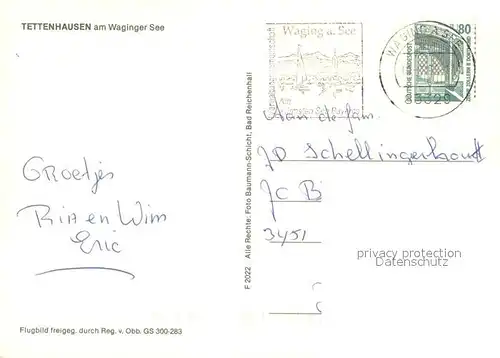 TETTENHAUSEN am Waginger See
Waging a. See
80
DEUTSCHE BUNDESPOST
ZECHE ZOLLERN II DORTMUND
Aan de fam.
JD Schellingerhout
JC B
3451
Groetjes
Ria en Wim
Eric
privacy protection
Datenschutz
F 2022 Alle Rechte: Foto Baumann-Schicht, Bad Reichenhall
Flugbild freigeg. durch Reg. v. Obb. GS 300-283